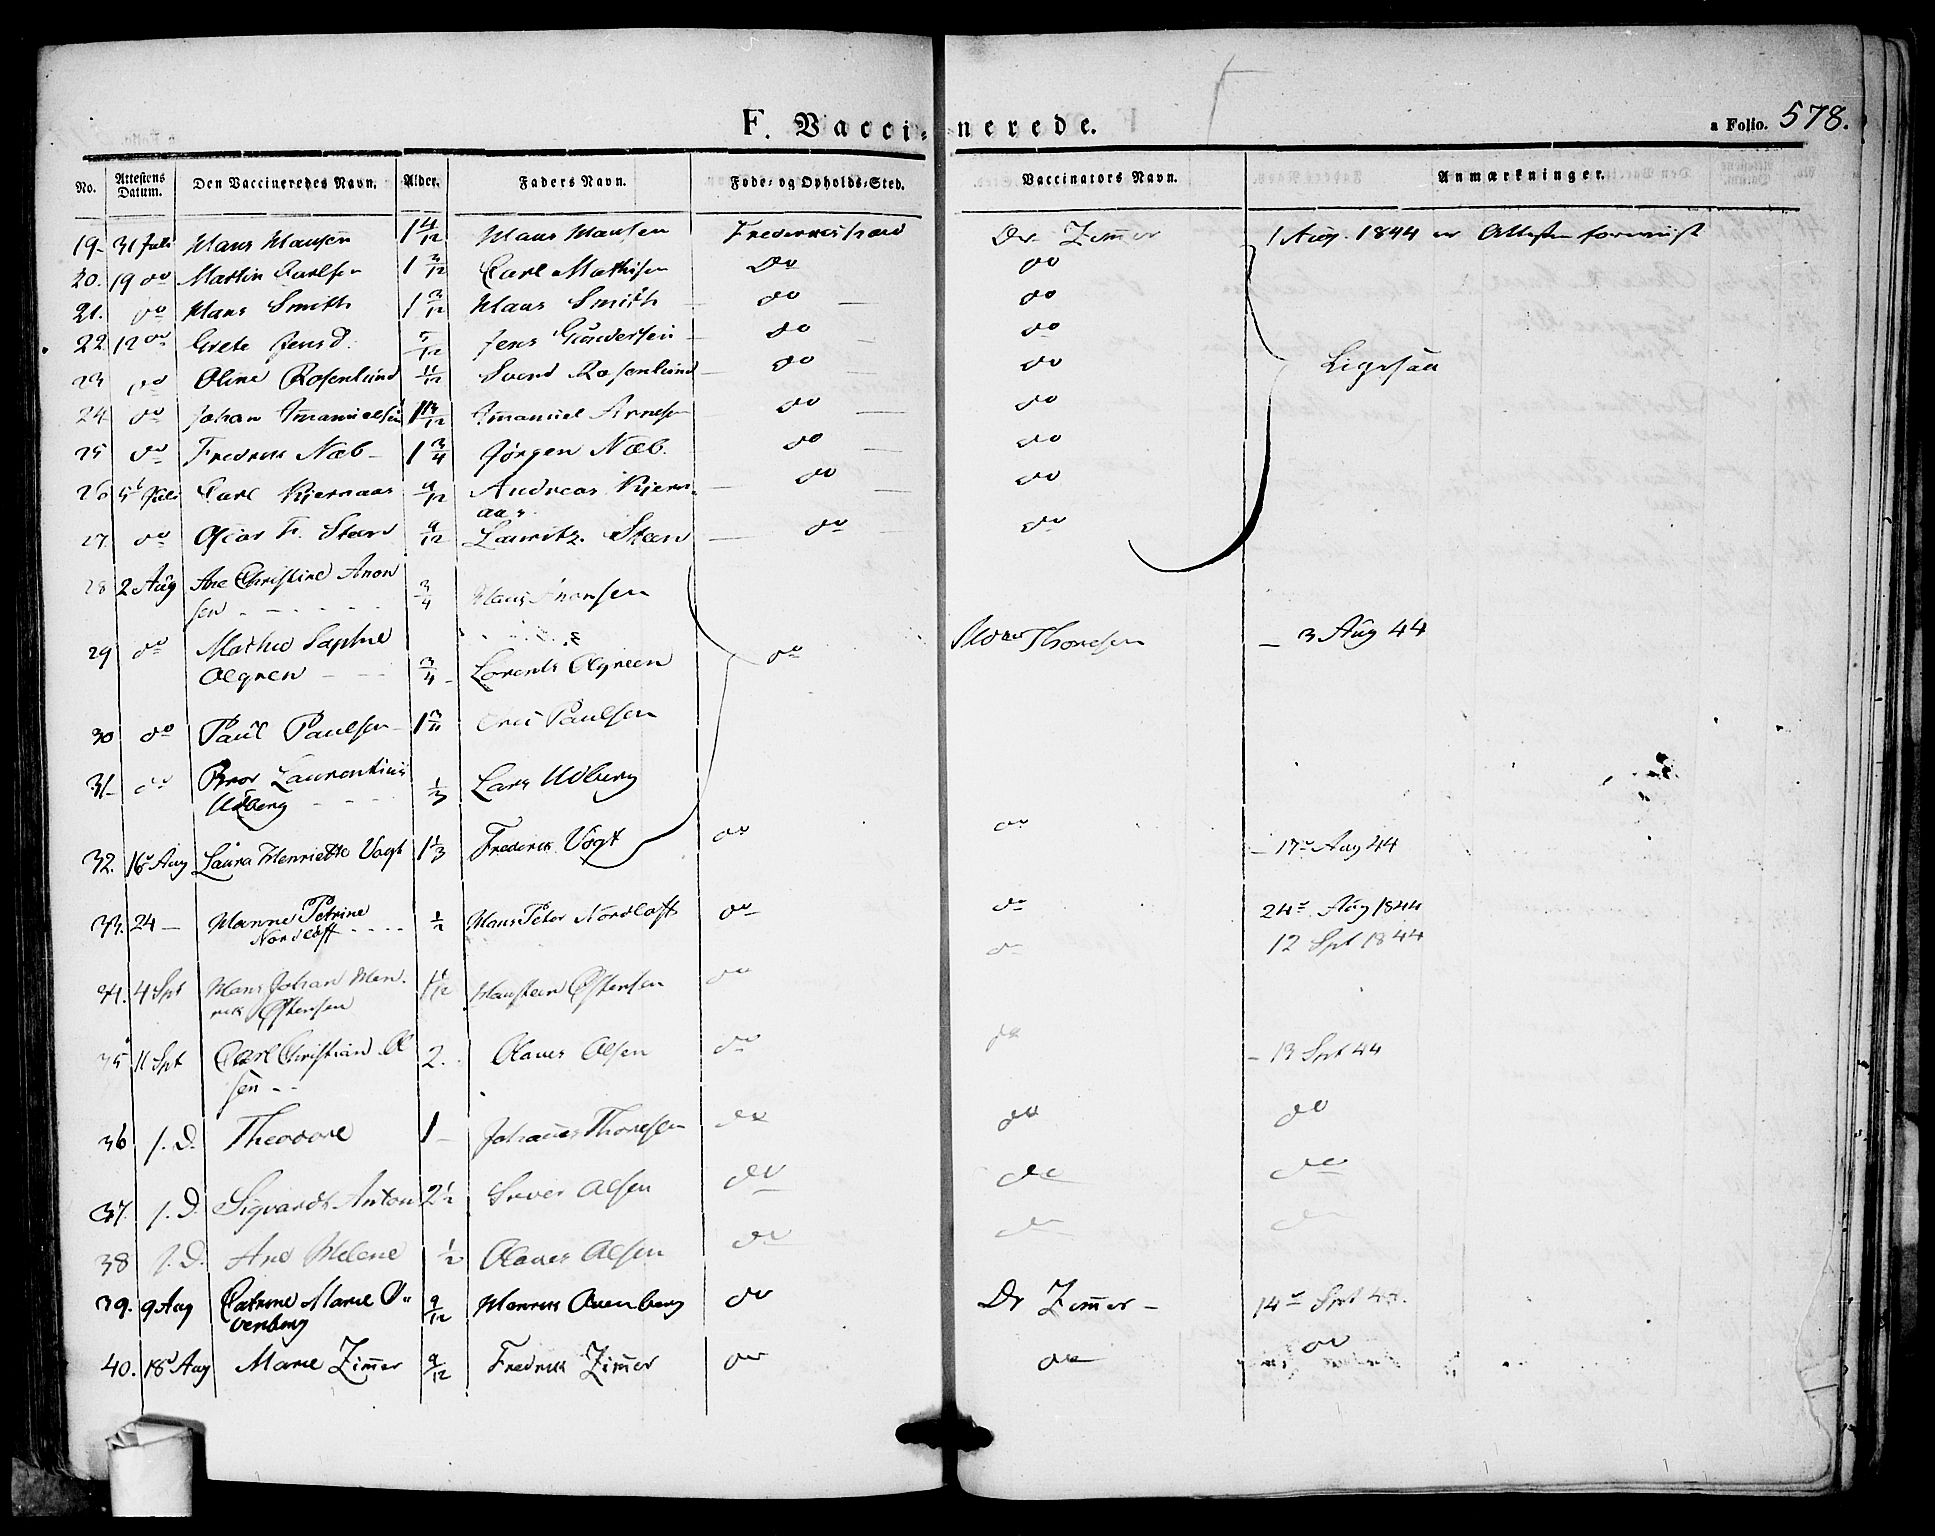 F. Vacci- nerede. a Folio. 578.
No. Attestens Datum. Den Vaccineredes Navn. Alder. Faders Navn. Føde- og Opholds-Sted. Vaccinators Navn. Anmærkninger.
19. 31 Juli Hans Hansen 1 4/12 Hans Hansen Dr Zimer 1 Aug. 1844 er Attesten forevist
20. 19 do Martin Carlsen 1 3/12 Carl Mathisen do do
21. do Hans Smith 1 3/12 Hans Smith do do
22 12 do Grete Jensd. 5/12 Jens Gundersen do do
23 do Oline Rosenlund 11/12 Svend Rosenlund do do Ligesaa
24 do Johan Imanuelsen Imanuel Arnesen do do
25 do Fredrik Næb 1 3/4 Jørgen Næb. do do
26 5 Juli Carl Kjernaas 9/12 Andreas Kjern-
aas.
do do
27. do Oscar F. Steen 9/12 Lauritz Steen do do
28 2 Aug Ane Christine Anon
sen 3/4 Hans Anonsen
29 do Mathea Sophie
Algren 3/4 Lorents Algreen do Thoresen 3 Aug 44
30 do Paul Paulsen Paulsen
31 do Bror Laurentius
Udberg 1/3 Lars Udberg
32. 16 Aug Laura Henriette Vogt 1 1/3 Frederik Vogt do do 17 Aug 44
33. 24 Hanne Petrine
Nordloft 1/2 Hans Peter Nordloft do do 24 Aug 1844
34. 4 Spt Hans Johan Hen-
rik Østensen Haustein Østensen do do 12 Spt 1844
35 11 Spt Carl Christian Ol
sen 2. Olaves Olsen do do 13 Spt 44
36 s. D. Theodore 1 Johanes Thoresen do do do
37. s. D. Sigvardt Anton 2 1/2 Olsen do do do
38 s. D. Ane Helene 1/2 Olaves Olsen do do do
39. 9 Aug Catrine Marie O-
venberg 9/12 Henrik Ovenberg do Dr Zimer 14 Spt 44.
40. 18 Aug Marie Zimer 9/12 Fredrik Zimer do do do